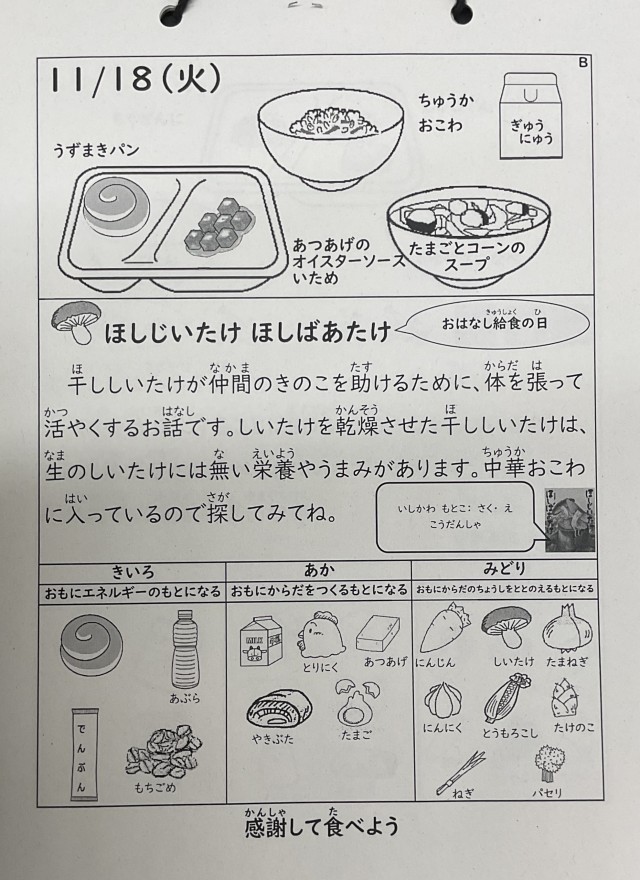 11/18(火)
B
うずまきパン
ちゅうか
おこわ
ぎゅう
にゅう
あつあげの
オイスターソース
いため
たまごとコーンの
スープ
ほしじいたけ ほしばあたけ
おはなし給食の日
きゅうしょく ひ
干ししいたけが仲間のきのこを助けるために、体を張って
ほ なかま たす からだ は
活やくするお話です。しいたけを乾燥させた干ししいたけは、
かつ はなし かんそう ほ
生のしいたけには無い栄養やうまみがあります。中華おこわ
なま な えいよう ちゅうか
に入っているので探してみてね。
はい さが
いしかわ もとこ: さく・え
こうだんしゃ
きいろ
おもにエネルギーのもとになる
あぶら
でんぷん
もちごめ
あか
おもにからだをつくるもとになる
MILK
とりにく
あつあげ
やきぶた
たまご
みどり
おもにからだのちょうしをととのえるもとになる
にんじん
しいたけ
たまねぎ
にんにく
とうもろこし
たけのこ
ねぎ
パセリ
感謝して食べよう
かんしゃ た